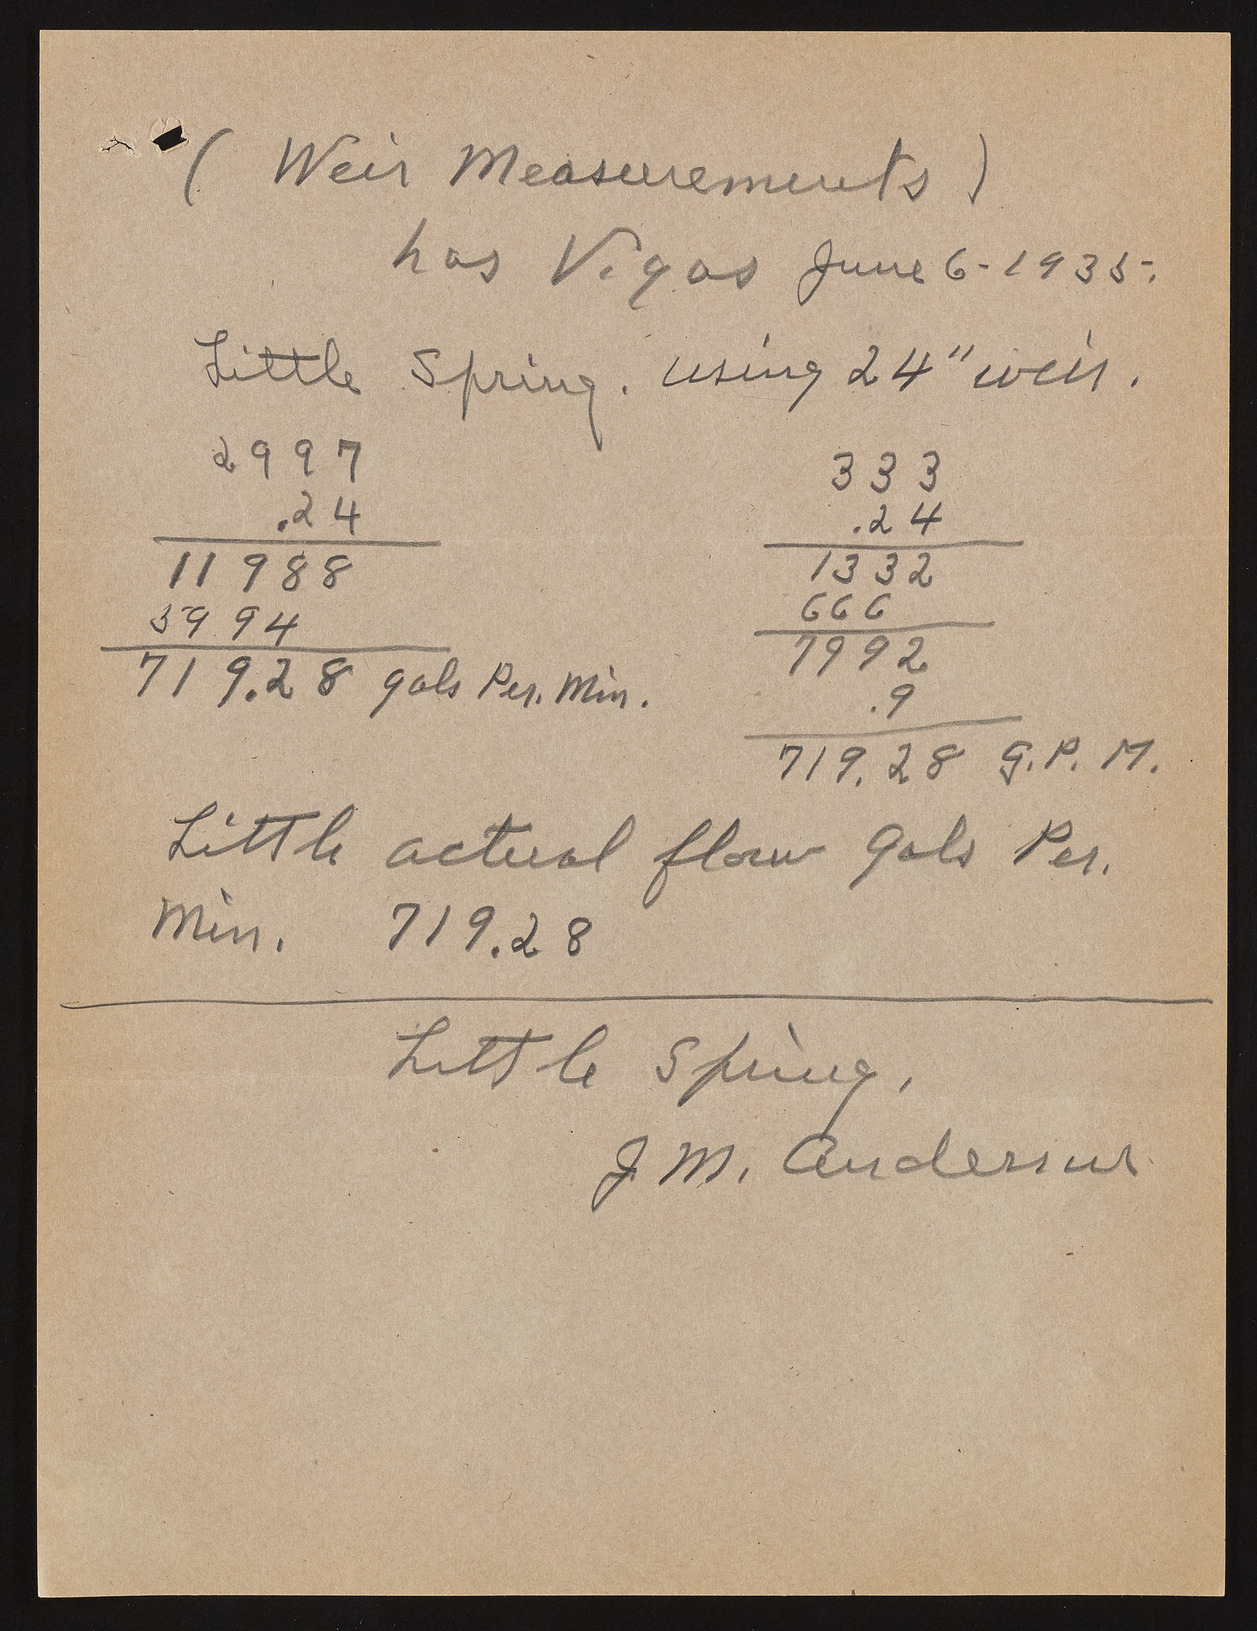 ( Weir Measurements )
Las Vegas June 6-1935.
Little Spring. using 24" weir.
2997
.24
11988
5994
719.28 gals Per. Min.
333
.24
1332
666
7992
.9
719.28 G.P.M.
Little actual flow Gals Per.
Min. 719.28
Little Spring,
J M. Anderson